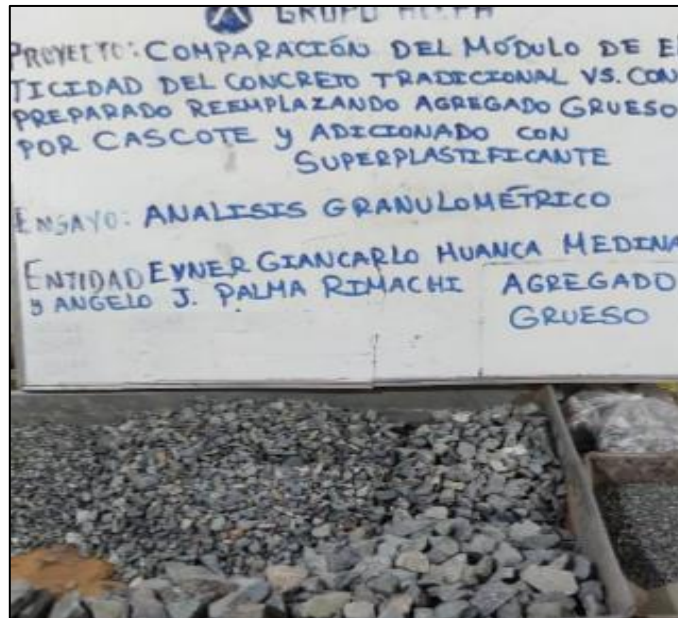 GRUPO
PROYECTO: COMPARACIÓN DEL MÓDULO DE EL
TICIDAD DEL CONCRETO TRADICIONAL VS. CON
PREPARADO REEMPLAZANDO AGREGADO GRUESO
POR CASCOTE y ADICIONADO CON
SUPERPLASTIFICANTE
ENSAYO: ANALISIS GRANULOMÉTRICO
ENTIDAD EYNER GIANCARLO HUANCA MEDINA
y ANGELO J. PALMA RIMACHI
AGREGADO
GRUESO